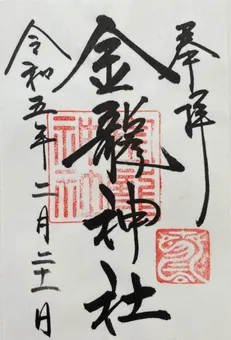 奉拝
金龍神社
令和五年 二月二十一日